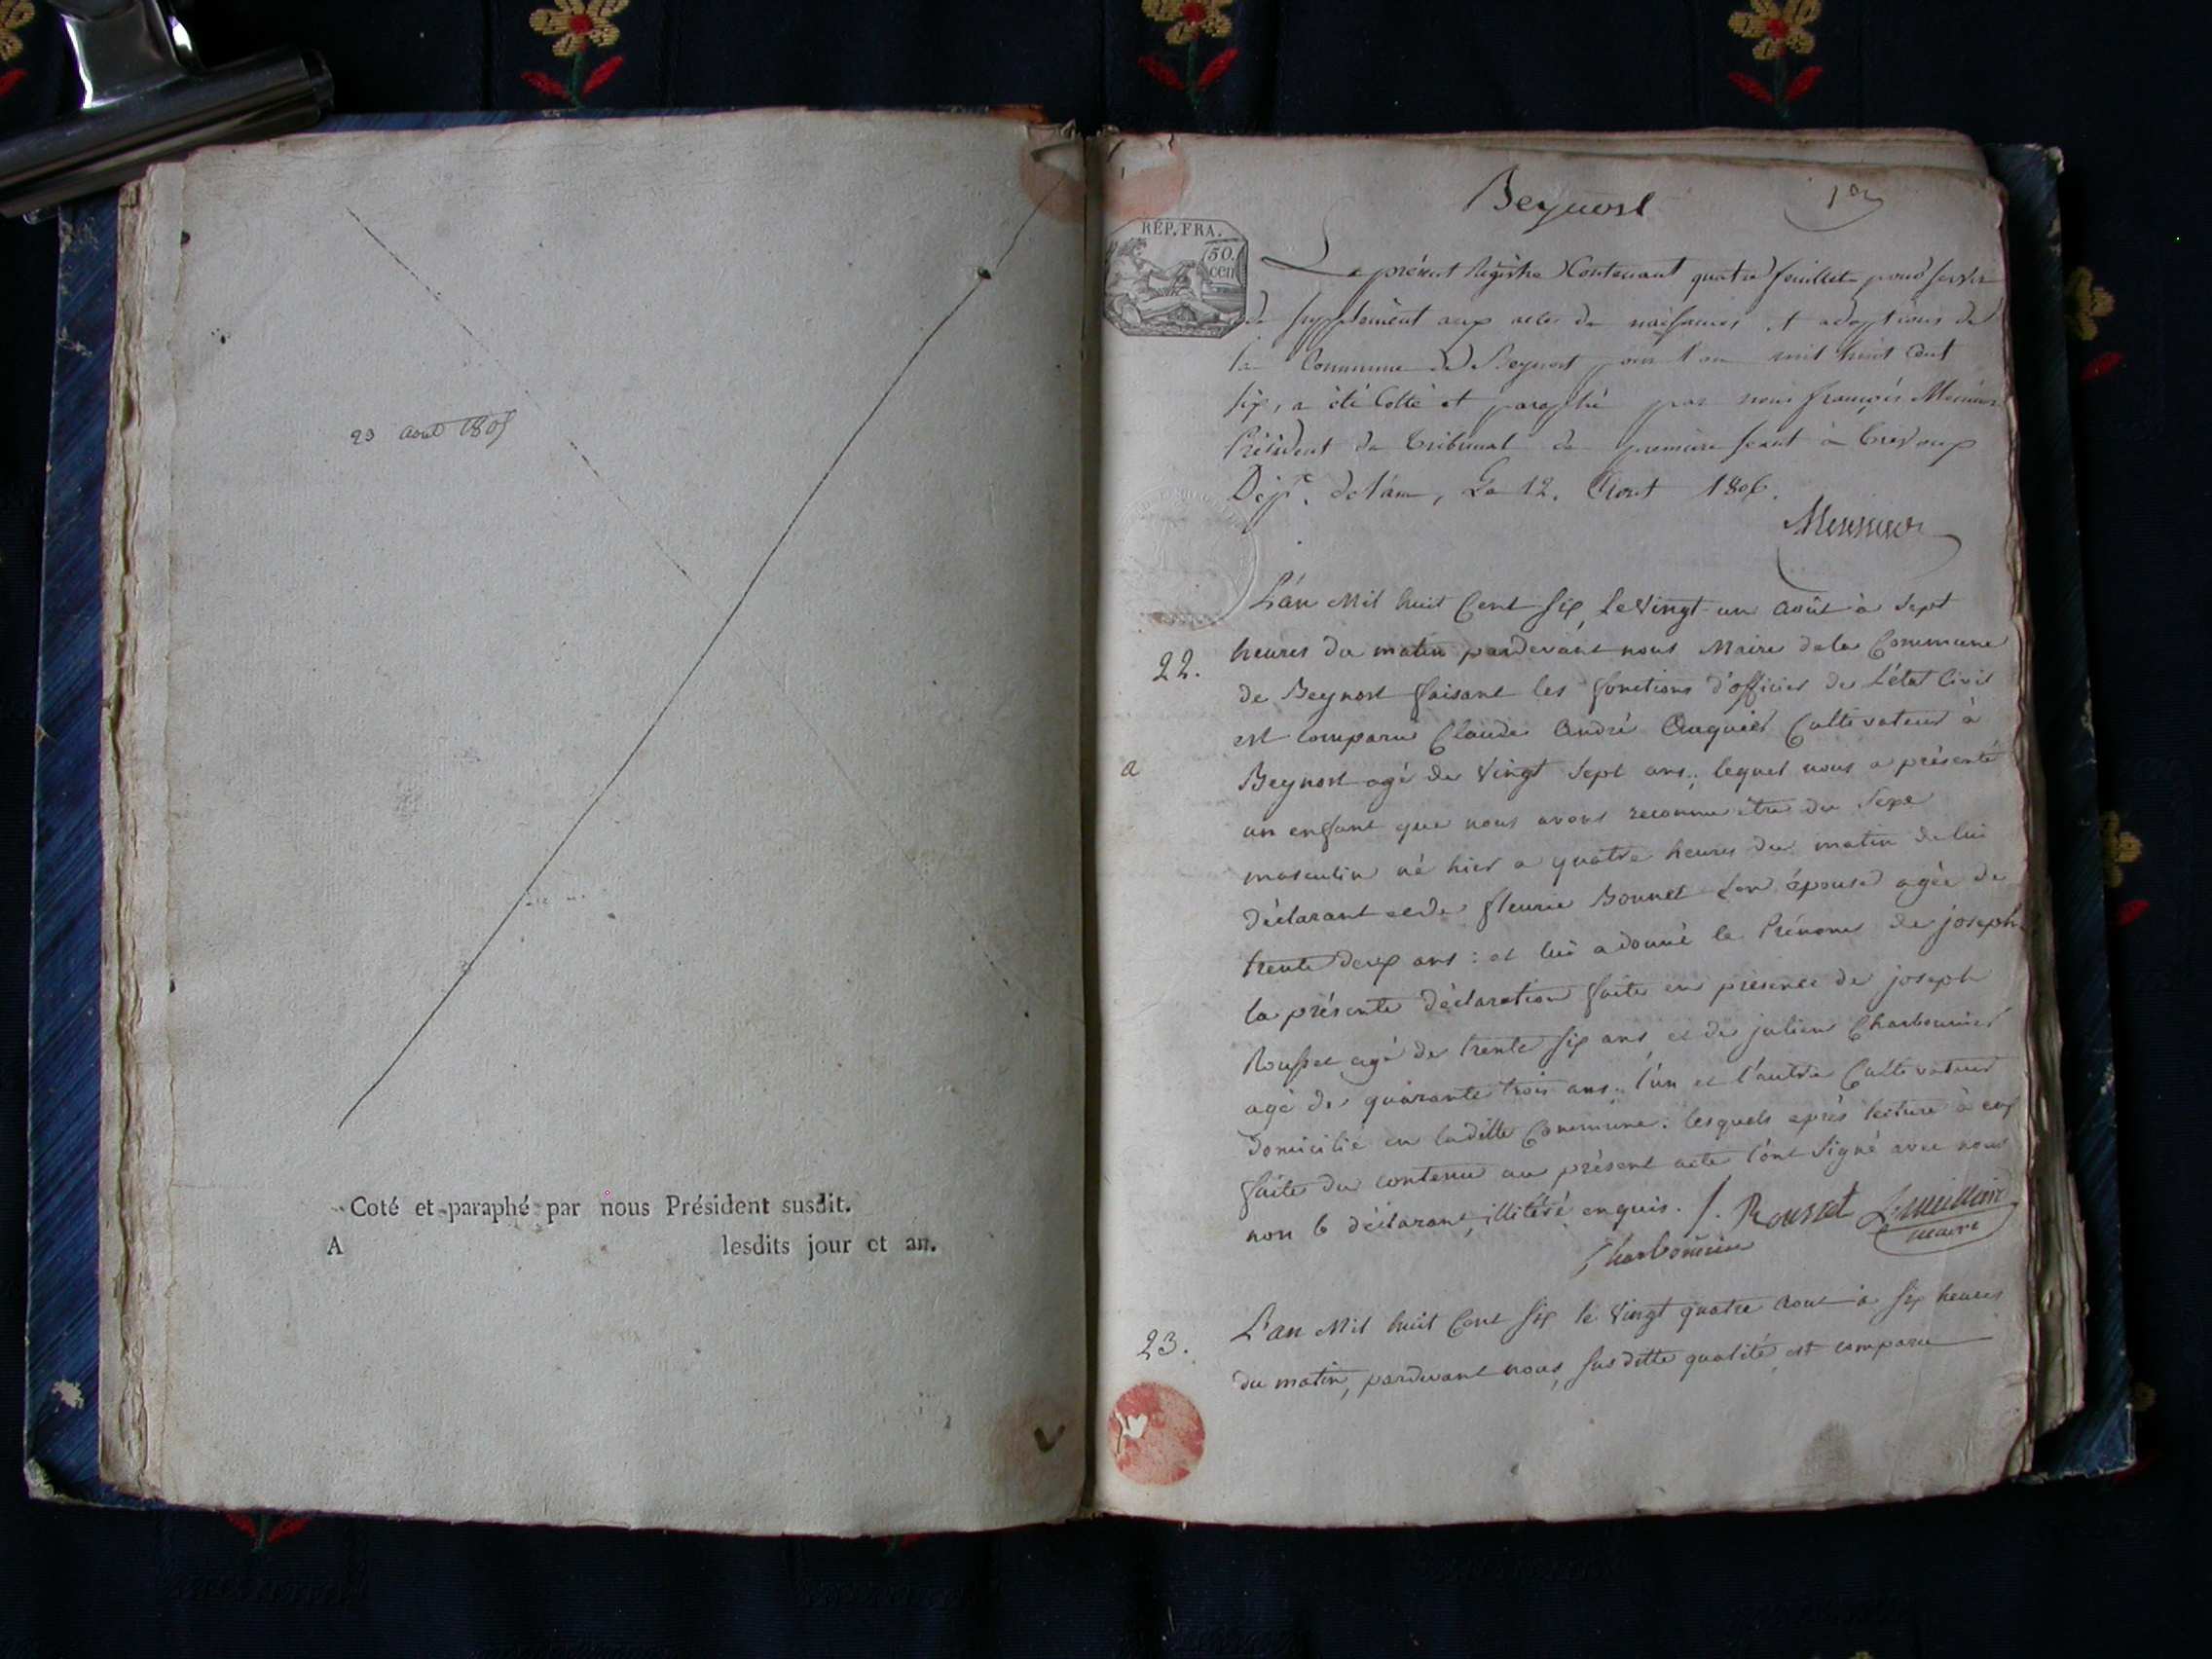 23 aout 1805
Coté et paraphé par nous Président susdit.
A lesdits jour et an.
Beynost
1er
RÉP. FRA.
50.
cen
Le présent Régistre Contenant quatre feuillets pour servir
de supplément aux actes de naissances et adoptions de
la Commune de Beynost pour l'an mil huit cent
six, a été Cotté et paraphé par nous françois
Président du Tribunal de premiere seant à Trevoux
Dépt. de l'ain, Le 12. Aout 1806.
L'an Mil huit Cent six, le vingt un août à sept
22.
heures du matin pardevant nous Maire dela Commune
de Beynost faisant les fonctions d'officier de L'état Civil
est comparu Claude André Cultivateur à
a
Beynost agé de vingt sept ans; lequel nous a présenté
un enfant que nous avons reconnu être du sexe
masculin né hier a quatre heures du matin de lui
déclarant et de fleurie Bonnet son épouse agée de
trente deux ans: et lui a donné le Prénom de joseph
la présente déclaration faite en présence de joseph
Rousset agé de trente six ans et de julien Charbonnier
agé de quarante trois ans; l'un et l'autre Cultivateur
domicilié en laditte Commune. lesquels après lecture à eux
faite du contenu au présent acte l'ont signé avec nous
non le déclarant, illitéré enquis. J. Rousset
maire
Charbonnier
23.
L'an Mil huit Cent six le vingt quatre aout à six heures
du matin, pardevant nous, susditte qualité, est comparu